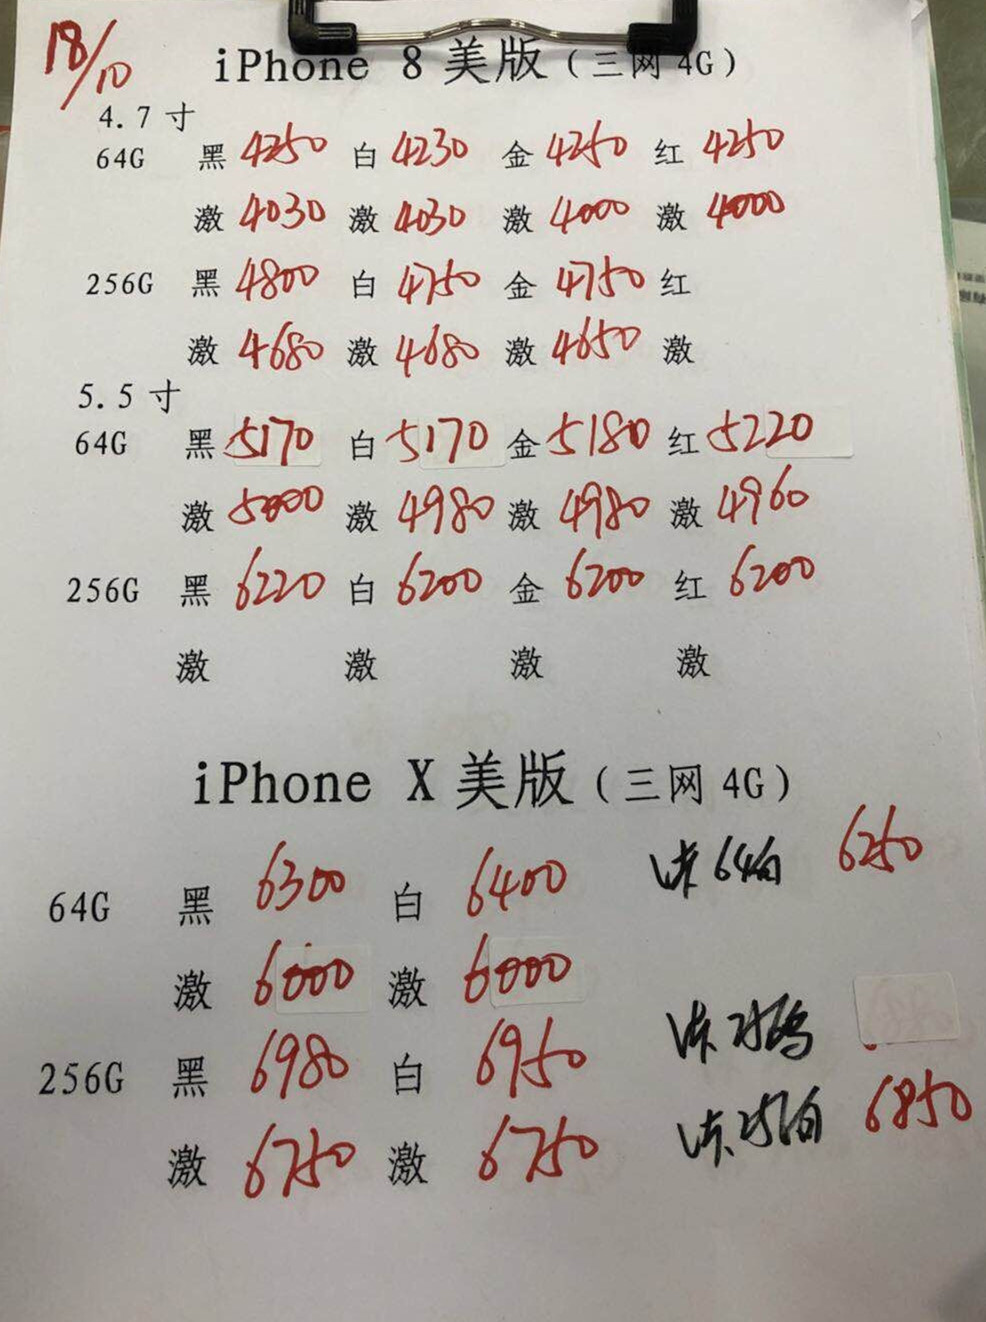 18/10
iPhone 8 美版（三网 4G）
4.7 寸
64G 黑 4250 白 4230 金 4250 红 4250
激 4030 激 4030 激 4000 激 4000
256G 黑 4800 白 4750 金 4750 红
激 4680 激 4680 激 4650 激
5.5 寸
64G 黑 5170 白 5170 金 5180 红 5220
激 5000 激 4980 激 4980 激 4960
256G 黑 6220 白 6200 金 6200 红 6200
激 激 激 激
iPhone X 美版（三网 4G）
64G 黑 6300 白 6400 64白 6250
激 6000 激 6000
256G 黑 6980 白 6950
激 6750 激 6750 6850